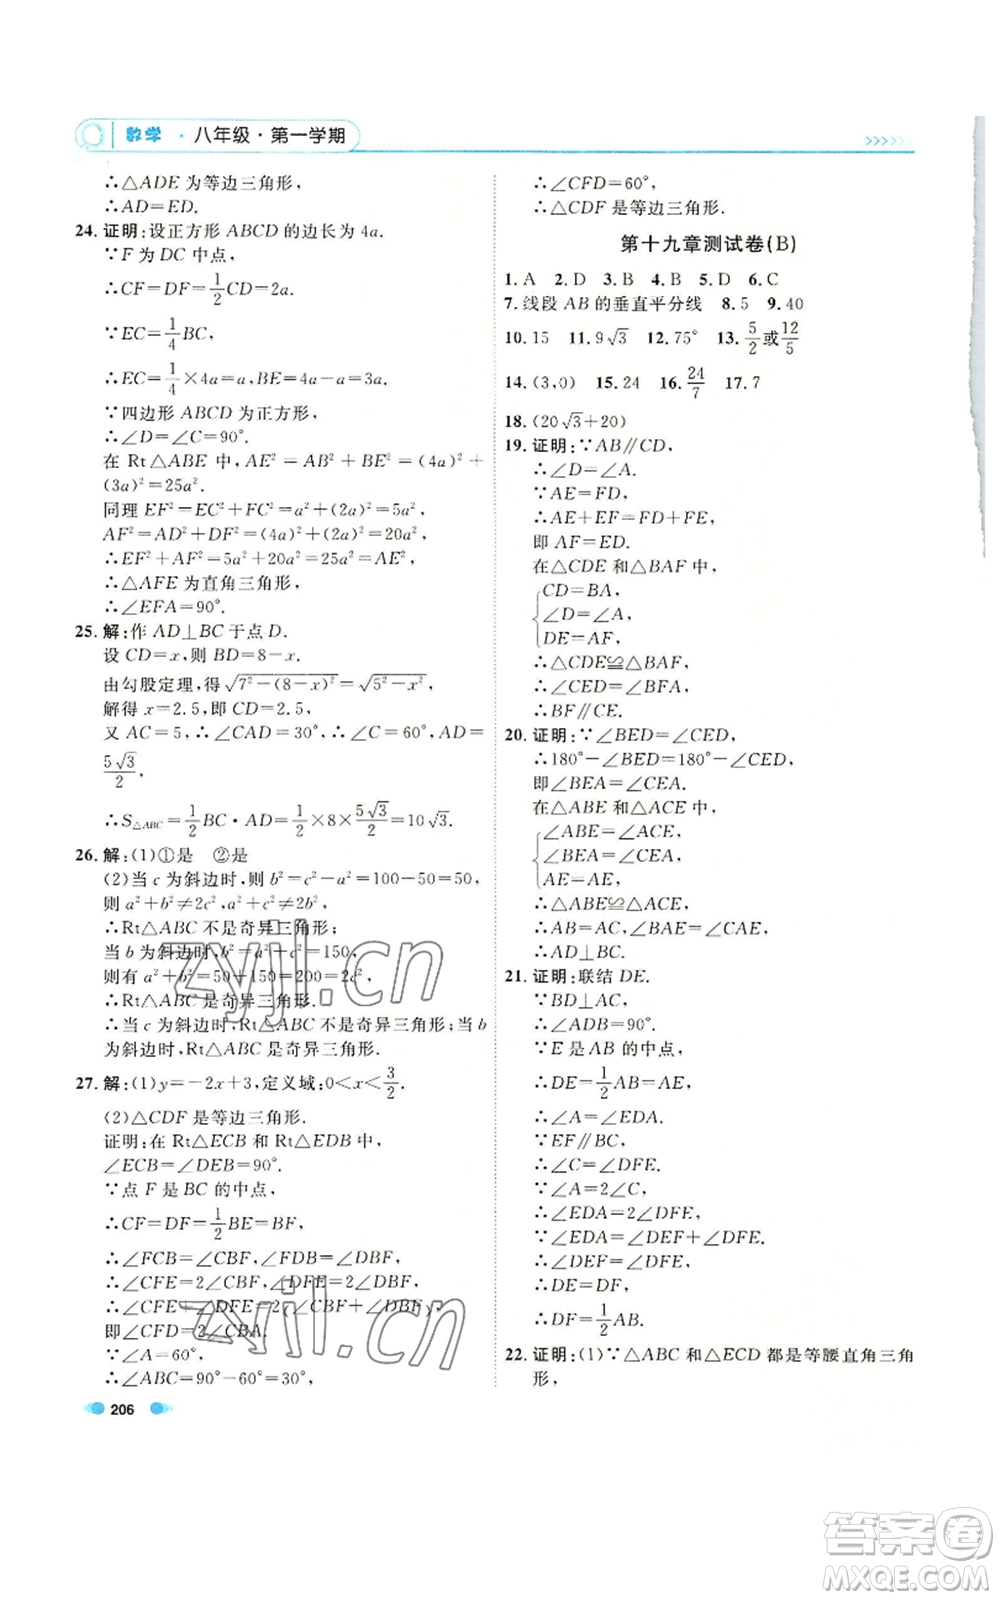 数学·八年级·第一学期
∴△ADE 为等边三角形,
∴AD=ED.
24. 证明:设正方形 ABCD 的边长为 4a.
∵F 为 DC 中点,
∴CF=DF=1/2CD=2a.
∵EC=1/4BC,
∴EC=1/4×4a=a,BE=4a-a=3a.
∵四边形 ABCD 为正方形,
∴∠D=∠C=90°.
在 Rt△ABE 中,AE²=AB²+BE²=(4a)²+
(3a)²=25a².
同理 EF²=EC²+FC²=a²+(2a)²=5a²,
AF²=AD²+DF²=(4a)²+(2a)²=20a².
∵EF²+AF²=5a²+20a²=25a²=AE²,
∴△AFE 为直角三角形,
∴∠EFA=90°.
25. 解:作 AD⊥BC 于点 D.
设 CD=x,则 BD=8-x.
由勾股定理,得√(7²-(8-x)²)=√(5²-x²),
解得 x=2.5,即 CD=2.5,
又 AC=5,∴∠CAD=30°,∴∠C=60°,AD=
5√3/2,
∴S△ABC=1/2BC·AD=1/2×8×5√3/2=10√3.
26. 解:(1)①是 ②是
(2)当 c 为斜边时,则 b²=c²-a²=100-50=50,
则 a²+b²≠2c²,a²+c²≠2b²,
∴Rt△ABC 不是奇异三角形,
当 b 为斜边时,b²=a²+c²=150,
则有 a²+b²=50+150=200=2c²,
∴Rt△ABC 是奇异三角形,
∴当 c 为斜边时,Rt△ABC 不是奇异三角形;当 b
为斜边时,Rt△ABC 是奇异三角形.
27. 解:(1)y=-2x+3,定义域:0<x<3/2.
(2)△CDF 是等边三角形.
证明:在 Rt△ECB 和 Rt△EDB 中,
∠ECB=∠DEB=90°.
∵点 F 是 BC 的中点,
∴CF=DF=1/2BE=BF,
∴∠FCB=∠CBF,∠FDB=∠DBF,
∴∠CFE=2∠CBF,∠DFE=2∠DBF,
∴∠CFE+∠DFE=2(∠CBF+∠DBF),
即∠CFD=2∠CBA.
∵∠A=60°,
∴∠ABC=90°-60°=30°,
206
∴∠CFD=60°,
∴△CDF 是等边三角形.
第十九章测试卷(B)
1. A 2. D 3. B 4. B 5. D 6. C
7. 线段 AB 的垂直平分线 8. 5 9. 40
10. 15 11. 9√3 12. 75° 13. 5/2或12/5
14. (3,0) 15. 24 16. 24/7 17. 7
18. (20√3+20)
19. 证明:∵AB∥CD,
∴∠D=∠A.
∵AE=FD,
∴AE+EF=FD+FE,
即 AF=ED.
在△CDE 和△BAF 中,
CD=BA,
∠D=∠A,
DE=AF,
∴△CDE≌△BAF.
∴∠CED=∠BFA,
∴BF∥CE.
20. 证明:∵∠BED=∠CED,
∴180°-∠BED=180°-∠CED,
即∠BEA=∠CEA.
在△ABE 和△ACE 中,
∠ABE=∠ACE,
∠BEA=∠CEA,
AE=AE,
∴△ABE≌△ACE,
∴AB=AC,∠BAE=∠CAE,
∴AD⊥BC.
21. 证明:联结 DE.
∵BD⊥AC,
∴∠ADB=90°.
∵E 是 AB 的中点,
∴DE=1/2AB=AE,
∴∠A=∠EDA.
∵EF∥BC,
∴∠C=∠DFE.
∵∠A=2∠C,
∴∠EDA=2∠DFE,
∵∠EDA=∠DEF+∠DFE,
∴∠DEF=∠DFE,
∴DE=DF,
∴DF=1/2AB.
22. 证明:(1)∵△ABC 和△ECD 都是等腰直角三角
形,
zyjl.cn
zyjl.cn
答案圈
MXQE.COM